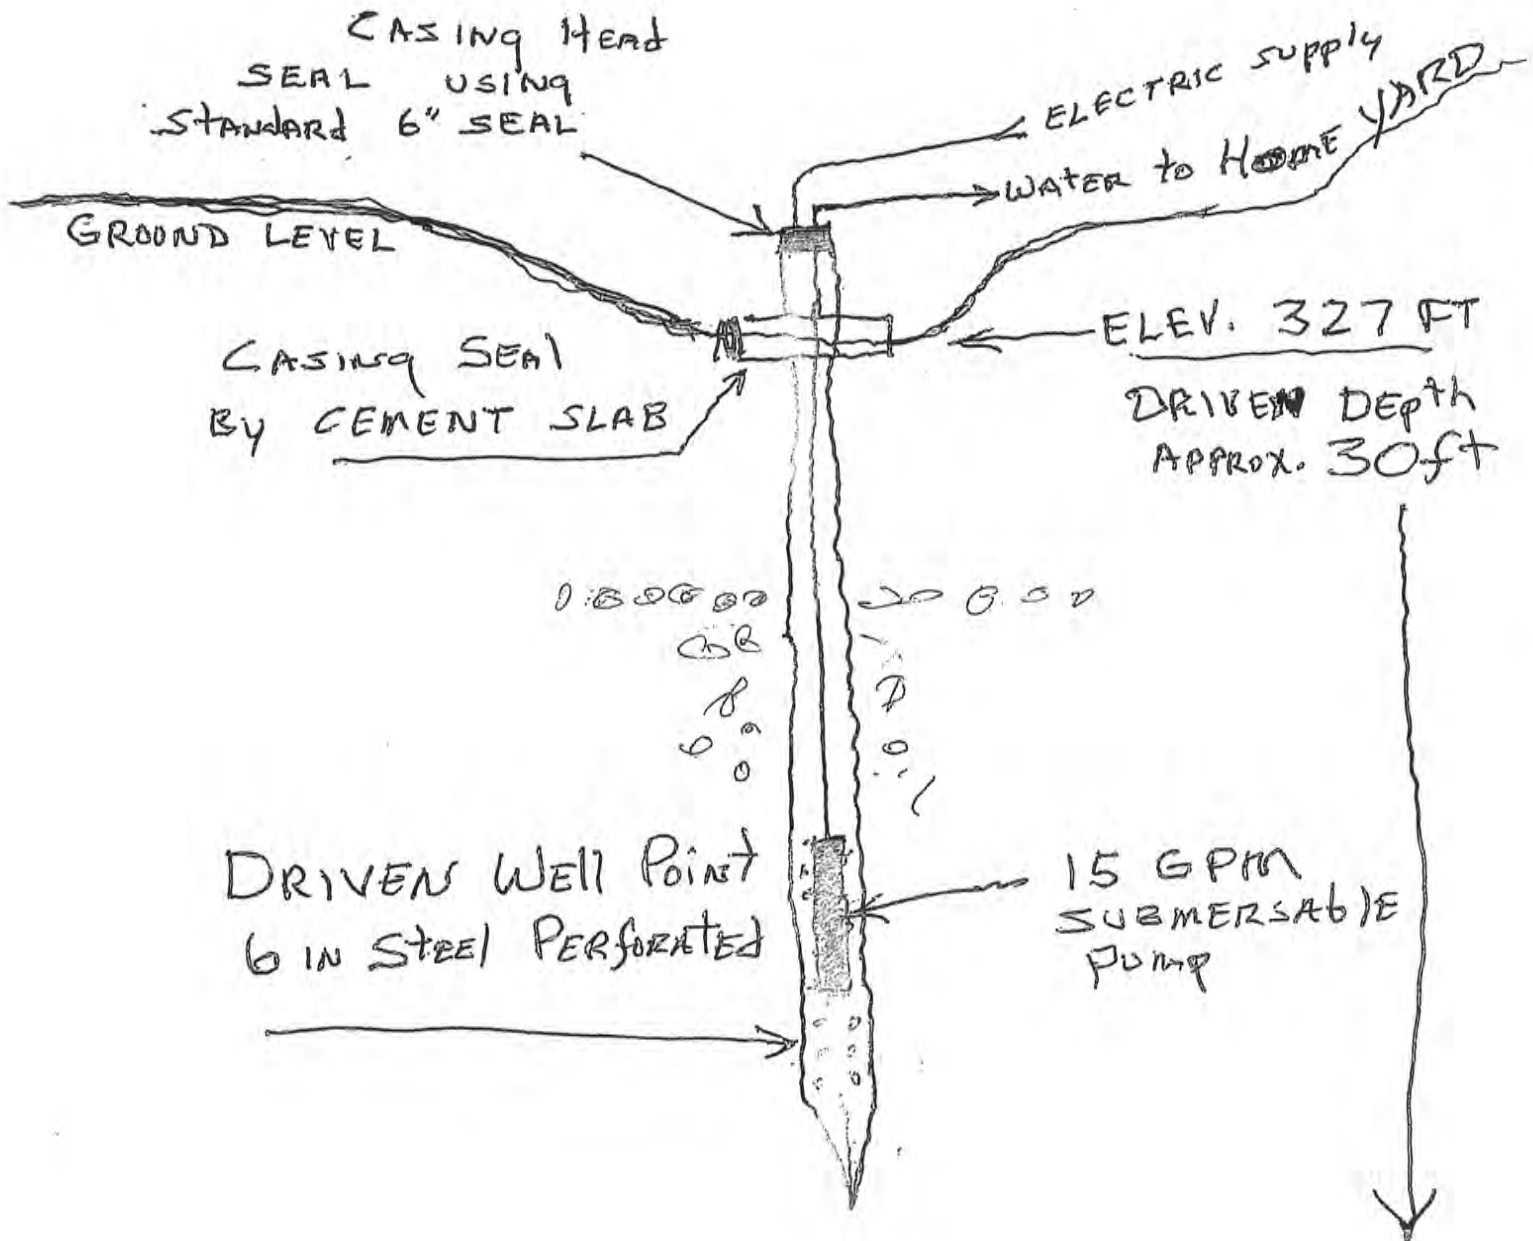 CASING HEAD
SEAL USING
STANDARD 6" SEAL
ELECTRIC SUPPLY
WATER to HOME
YARD
GROUND LEVEL
CASING SEAL
By CEMENT SLAB
ELEV. 327 FT
DRIVEN DEpth
APPROX. 30ft
DRIVEN WEll POINT
6 IN STEEl PERforATEd
15 GPM
SUBMERSAblE
Pump